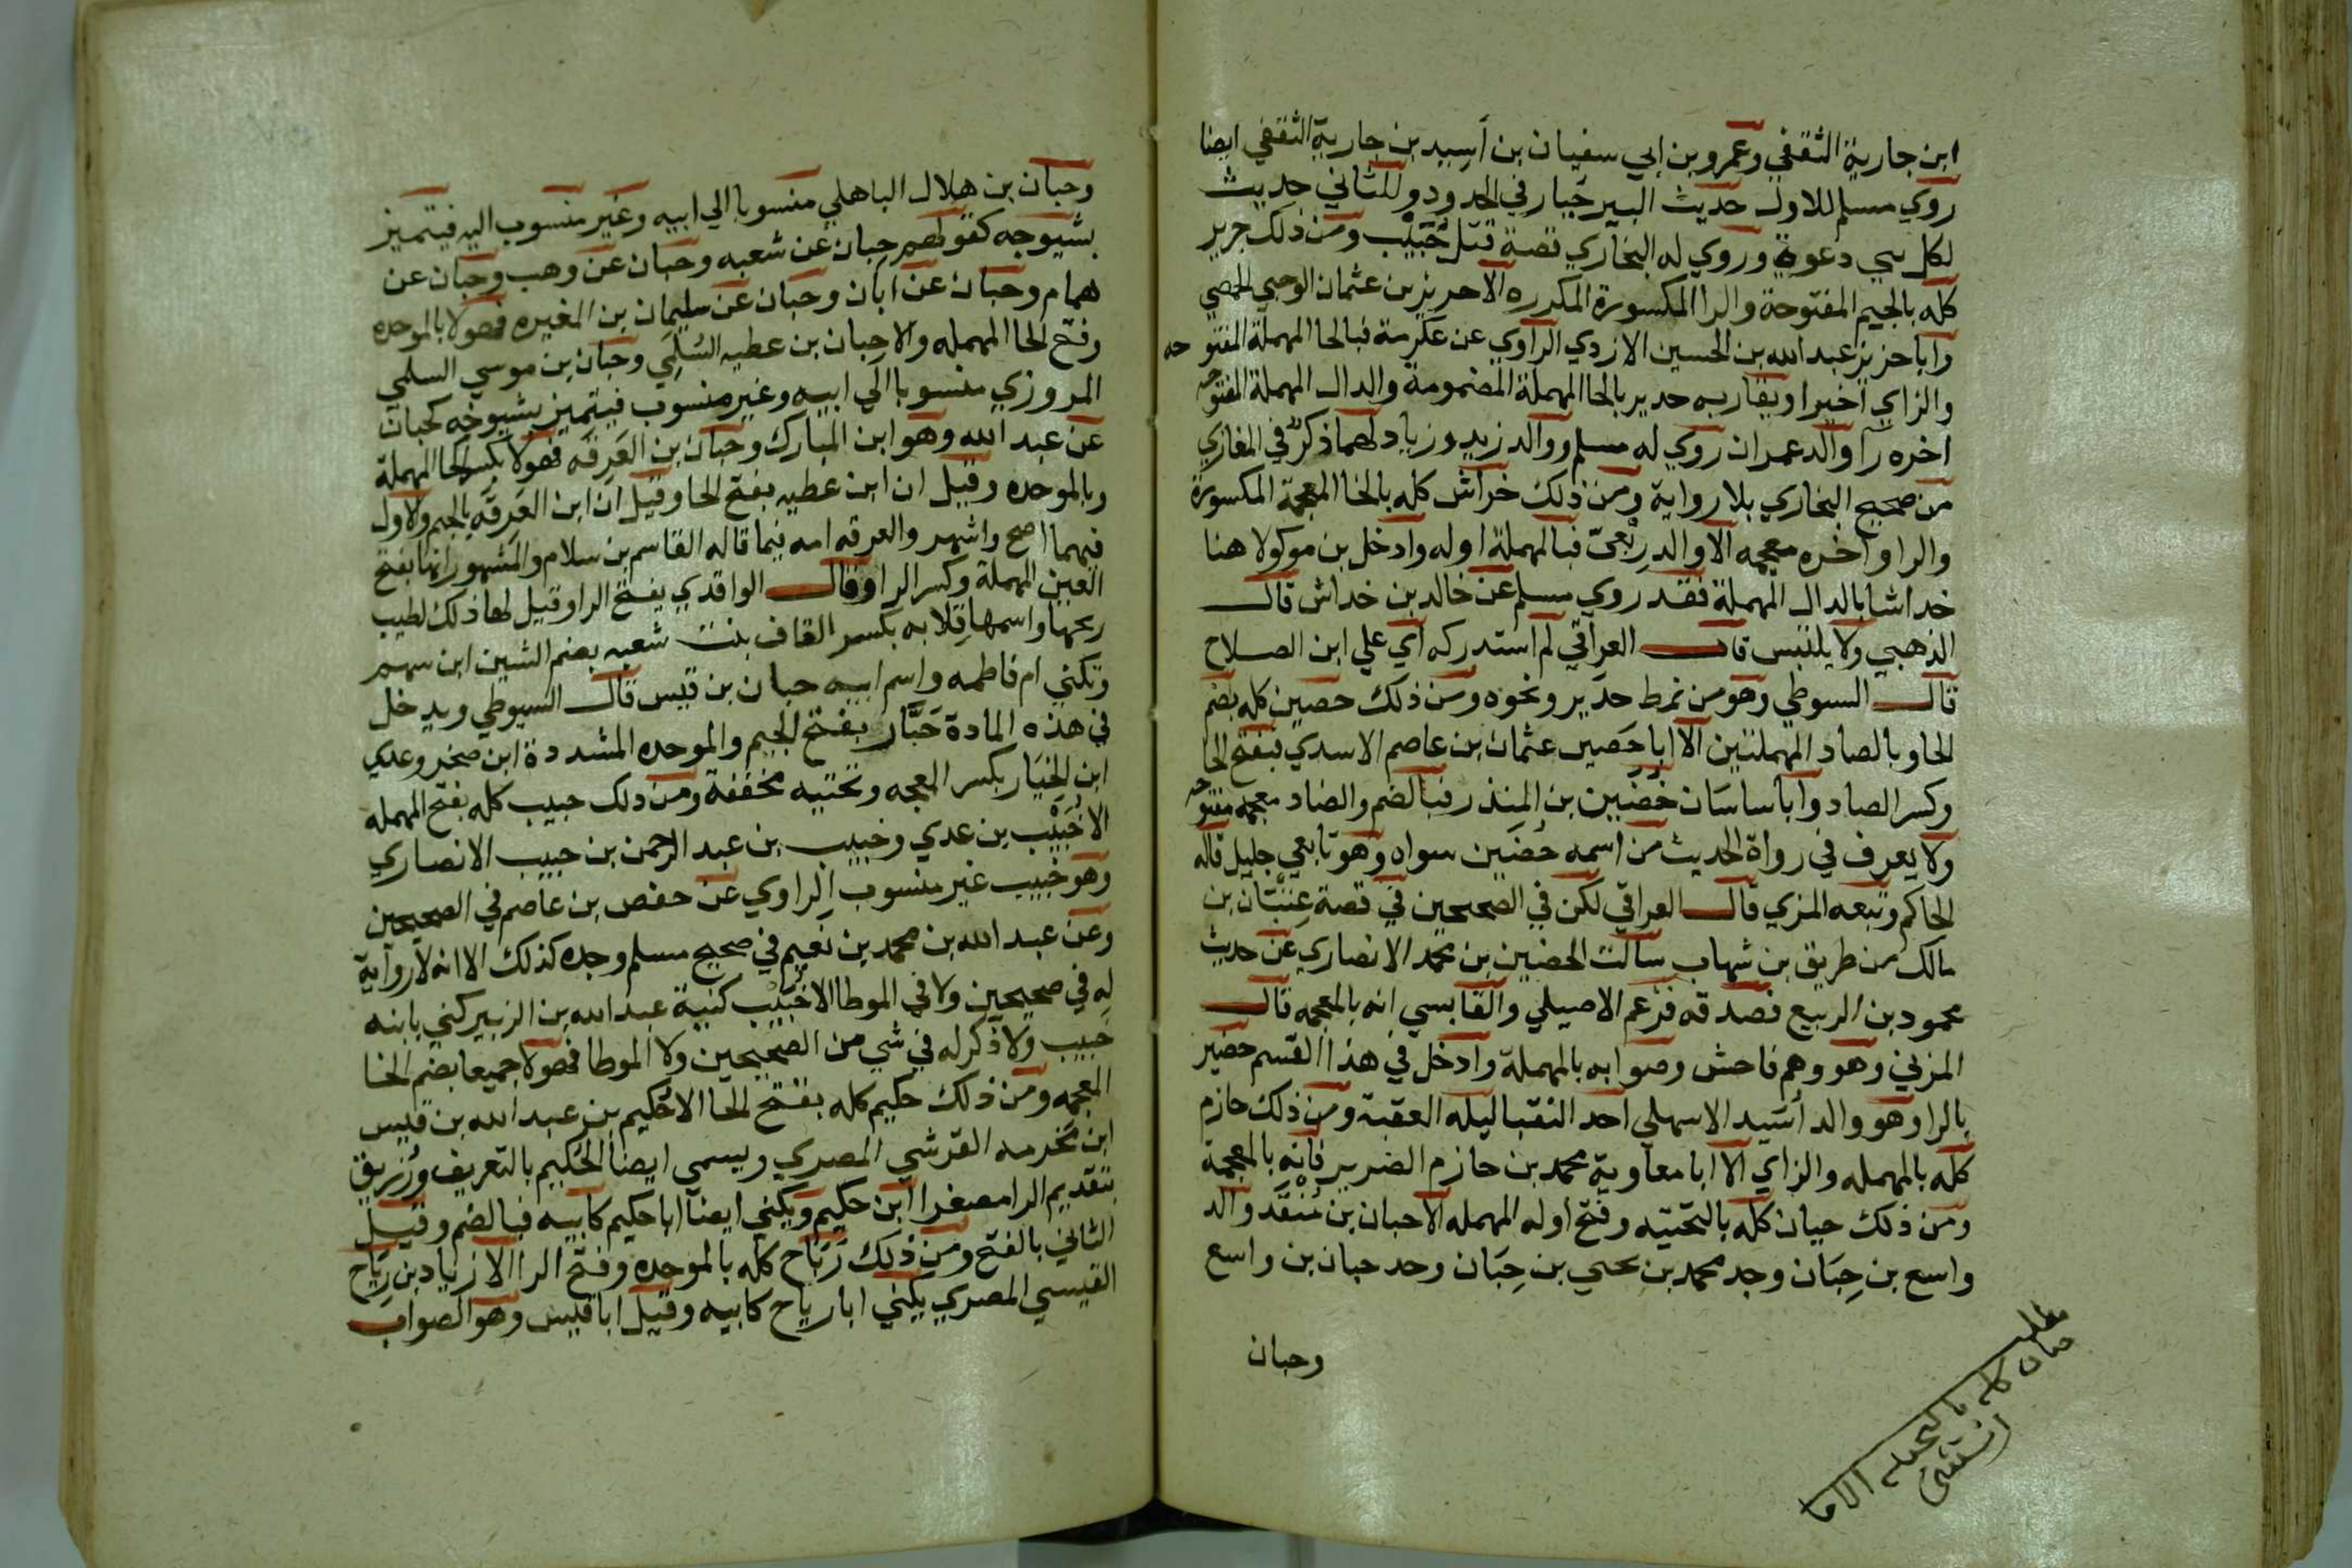 ابن جارية الثقفي وعمرو بن ابي سفيان بن أسيد بن جارية الثقفي ايضا
روي مسلم للاول حديث البير جبار في الحدود وللثاني حديث
لكل نبي دعوة وروي له البخاري قصة قتل خُبَيْب ومن ذلك جرير
كله بالجيم المفتوحة والرا المكسورة المكرره الا حريز بن عثمان الرحبي الحمصي
وابا حريز عبد الله بن الحسين الازدي الراوي عن عكرمة فبالحا المهملة المفتوحه
والزاي اخيرا ويقاربه حدير بالحا المهملة المضمومة والدال المهملة المفتوحه
اخره را والد عمران روي له مسلم ووالد زيد وزياد لهما ذكر في المغازي
من صحيح البخاري بلا رواية ومن ذلك خراش كله بالخا المعجمة المكسورة
والرا واخره معجمه الا والد ربعيّ فبالمهملة اوله وادخل بن موكولا هنا
خداشا بالدال المهملة فقد روي مسلم عن خالد بن خداش قال
الذهبي ولا يلتبس قال العراقي لم استدركه اي علي ابن الصلاح
قال السيوطي وهو من نمط حدير ونحوه ومن ذلك حصين كله بضم
الحا وبالصاد المهملتين الا ابا حَصين عثمان بن عاصم الاسدي فبفتح الحا
وكسر الصاد وابا ساسَان حُضَين بن المنذر فبالضم والضاد معجمه مفتوحه
ولا يعرف في رواة الحديث من اسمه حُضَين سواه وهو تابعي جليل قاله
الحاكم وتبعه المزي قال العراقي لكن في الصحيحين في قصة عِتبَان بن
مالك من طريق بن شهاب سالت الحضين بن محمد الانصاري عن حديث
محمود بن الربيع فصدقه فزعم الاصيلي والقابسي انه بالمعجمه قال
المزني وهو وهم فاحش وصوابه بالمهملة وادخل في هذا القسم حضير
بالرا وهو والد أسَيد الاسهلي احد النقبا ليله العقبة ومن ذلك حازم
كله بالمهمله والزاي الا ابا معاوية محمد بن حازم الضرير فانه بالمعجمة
ومن ذلك حيان كله بالتحتيه وفتح اوله المهمله الا حبان بن مُنْقَد والد
واسع بن حِبَان وجد محمد بن يحيي بن حِبَان وحد حبان بن واسع
وحبان
مطلب
حيان كله بالتحتيه الا ما
استثني
وحبان بن هلال الباهلي منسوبا الي ابيه وغير منسوب اليه فيتميز
بشيوخه كقولهم حبان عن شعبه وحبان عن وهب وحبان عن
همام وحبان عن ابان وحبان عن سليمان بن المغيره فهولا بالموحده
وفتح الحا المهمله والا حِبان بن عطيه السُلمَي وحبان بن موسي السلمي
المروزي منسوبا الي ابيه وغير منسوب فيتميز بشيوخه كحبان
عن عبد الله وهو ابن المبارك وحبان بن العَرِقَه فهولا بكسر الحا المهملة
وبالموحده وقيل ان ابن عطيه بفتح الحا وقيل ان ابن العَرِقَه بالجيم ولاول
فيهما اصح واشهر والعرقه امه فيما قاله القاسم بن سلام والمشهور انها بفتح
العين المهملة وكسر الرا وقال الواقدي بفتح الرا وقيل لها ذلك لطيب
ريحها واسمها قِلابه بكسر القاف بنت شعبه بضم الشين ابن سهم
وتكني ام فاطمه واسم ابيه حبان بن قيس قال السيوطي ويدخل
في هذه المادة جَبَّار بفتح الجيم والموحده المشددة ابن صخر وعدي
ابن الخِيَار بكسر المعجمه وتحتيه مخففة ومن ذلك حبيب كله بفتح المهمله
الا خُبَيْب بن عدي وخبيب بن عبد الرحمن بن خبيب الانصاري
وهو خبيب غير منسوب الراوي عن حفص بن عاصم في الصحيحين
وعن عبد الله بن محمد بن نعيم في صحيح مسلم وجده كذلك الا انه لا رواية
له في صحيحين ولا في الموطا الا خُبَيْب كنية عبد الله بن الزبير كني بابنه
خبيب ولا ذكر له في شي من الصحيحين ولا الموطا فهولا جميعا بضم الخا
المعجمه ومن ذلك حكيم كله بفتح الحا الا حُكيم بن عبد الله بن قيس
ابن مخرمه القرشي المصري ويسمي ايضا الحُكيم بالتعريف ورُزيق
بتقديم الرا مصغرا ابن حكيم ويكني ايضا ابا حكيم كابيه فبالضم وقيل
الثاني بالفتح ومن ذلك رَبَاح كله بالموحده وفتح الرا الا زياد بن رِيَاح
القيسي المصري يكني ابا رياح كابيه وقيل ابا قيس وهو الصواب